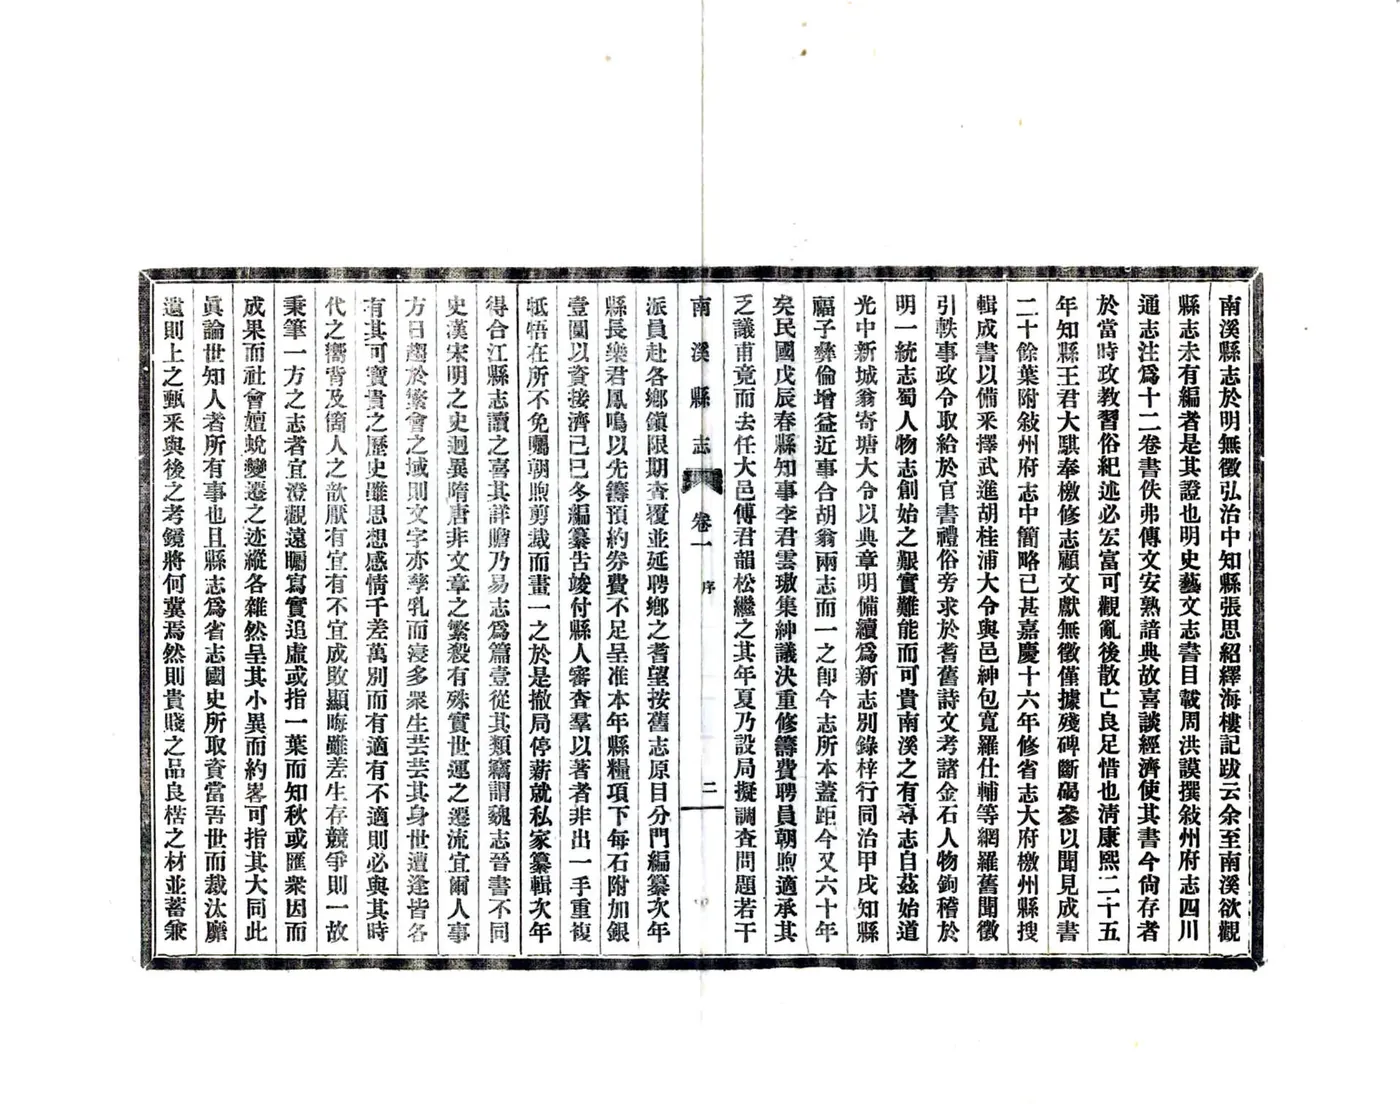 南溪縣志於明無徵弘治中知縣張思紹繹海樓記跋云余至南溪欲觀
縣志未有編者是其證也明史藝文志書目載周洪謨撰敍州府志四川
通志注爲十二卷書佚弗傳文安熟諳典故喜談經濟使其書今尙存者
於當時政教習俗紀述必宏富可觀亂後散亡良足惜也淸康熙二十五
年知縣王君大騏奉檄修志顧文獻無徵僅據殘碑斷碣參以聞見成書
二十餘葉附敍州府志中簡略已甚嘉慶十六年修省志大府檄州縣搜
輯成書以備釆擇武進胡桂浦大令與邑紳包寬羅仕輔等網羅舊聞徵
引軼事政令取給於官書禮俗旁求於耆舊詩文考諸金石人物鉤稽於
明一統志蜀人物志創始之艱實難能而可貴南溪之有尋志自茲始道
光中新城翁寄塘大令以典章明備續爲新志別錄梓行同治甲戌知縣
福子彝倫增益近事合胡翁兩志而一之卽今志所本蓋距今又六十年
矣民國戊辰春縣知事李君雲璈集紳議決重修籌費聘員朝煦適承其
乏議甫竟而去任大邑傅君韻松繼之其年夏乃設局擬調查問題若干
南溪縣志 卷一 序 二
派員赴各鄉鎭限期查覆並延聘鄉之耆望按舊志原目分門編纂次年
縣長欒君鳳鳴以先籌預約劵費不足呈准本年縣糧項下每石附加銀
壹圓以資接濟己巳冬編纂吿竣付縣人審查羣以著者非出一手重複
牴牾在所不免囑朝煦剪裁而畫一之於是撤局停薪就私家纂輯次年
得合江縣志讀之喜其詳贍乃易志爲篇壹從其類竊謂魏志晉書不同
史漢宋明之史迥異隋唐非文章之繁殺有殊實世運之遷流宜爾人事
方日趨於繁會之域則文字亦孳乳而寖多衆生芸芸其身世遭逢皆各
有其可寶貴之歷史雖思想感情千差萬別而有適有不適則必與其時
代之嚮背及箇人之歆厭有宜有不宜成敗顯晦雖差生存競爭則一故
秉筆一方之志者宜澄觀遠矚寫實追虛或指一葉而知秋或匯衆因而
成果而社會嬗蛻變遷之迹縱各雜然呈其小異而約畧可指其大同此
眞論世知人者所有事也且縣志爲省志國史所取資當吾世而裁汰靡
遺則上之甄釆與後之考鏡將何冀焉然則貴賤之品良楛之材並蓄兼